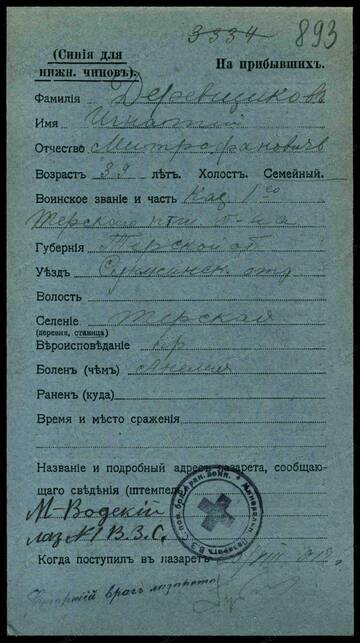 3334 893
(Синія для
нижн. чиновъ).
На прибывшихъ.
Фамилія Деревщиковъ
Имя Игнатій
Отчество Митрофановичъ
Возрастъ 33 лѣтъ. Холостъ. Семейный.
Воинское званіе и часть Каз. 1го
Терскаго б-на
Губернія Терской об
Уѣздъ Сунженск. отд
Волость
Селеніе Терская
(деревня, станица)
Вѣроисповѣданіе пр
Боленъ (чѣмъ) Анемія
Раненъ (куда)
Время и мѣсто сраженія
Названіе и подробный адресъ лазарета, сообщаю-
щаго свѣдѣнія (штемпель)
М-Водскій
лаз № 1 В.З.С.
Когда поступилъ въ лазаретъ
Старшій врач лазарета